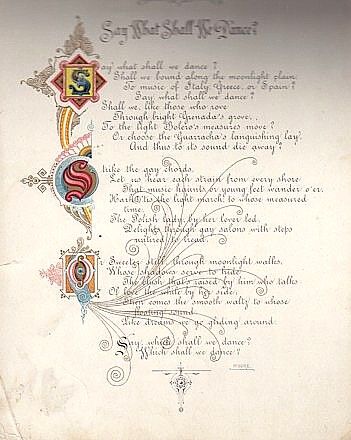 Say What Shall We Dance?
Say what shall we dance?
Shall we bound along the moonlight plain,
To music of Italy, Greece, or Spain?
Say, what shall we dance?
Shall we, like those who rove
Through bright Grenada's grove,
To the light Bolero's measures move?
Or choose the Guaracha's languishing lay,
And thus to its sound die away?
Strike the gay chords,
Let us hear each strain from every shore
That music haunts or young feet wander o'er.
Hark! 'tis the light march, to whose measured
time,
The Polish lady, by her lover led,
Delights through gay salons with steps
untired to tread.
Or Sweeter still, through moonlight walks,
Whose shadows serve to hide
The blush that's raised by him who talks
Of love the while by her side;
Then comes the smooth waltz to whose
floating sound
Like dreams we go gliding around.
Say, which shall we dance?
Which shall we dance?
MOORE.